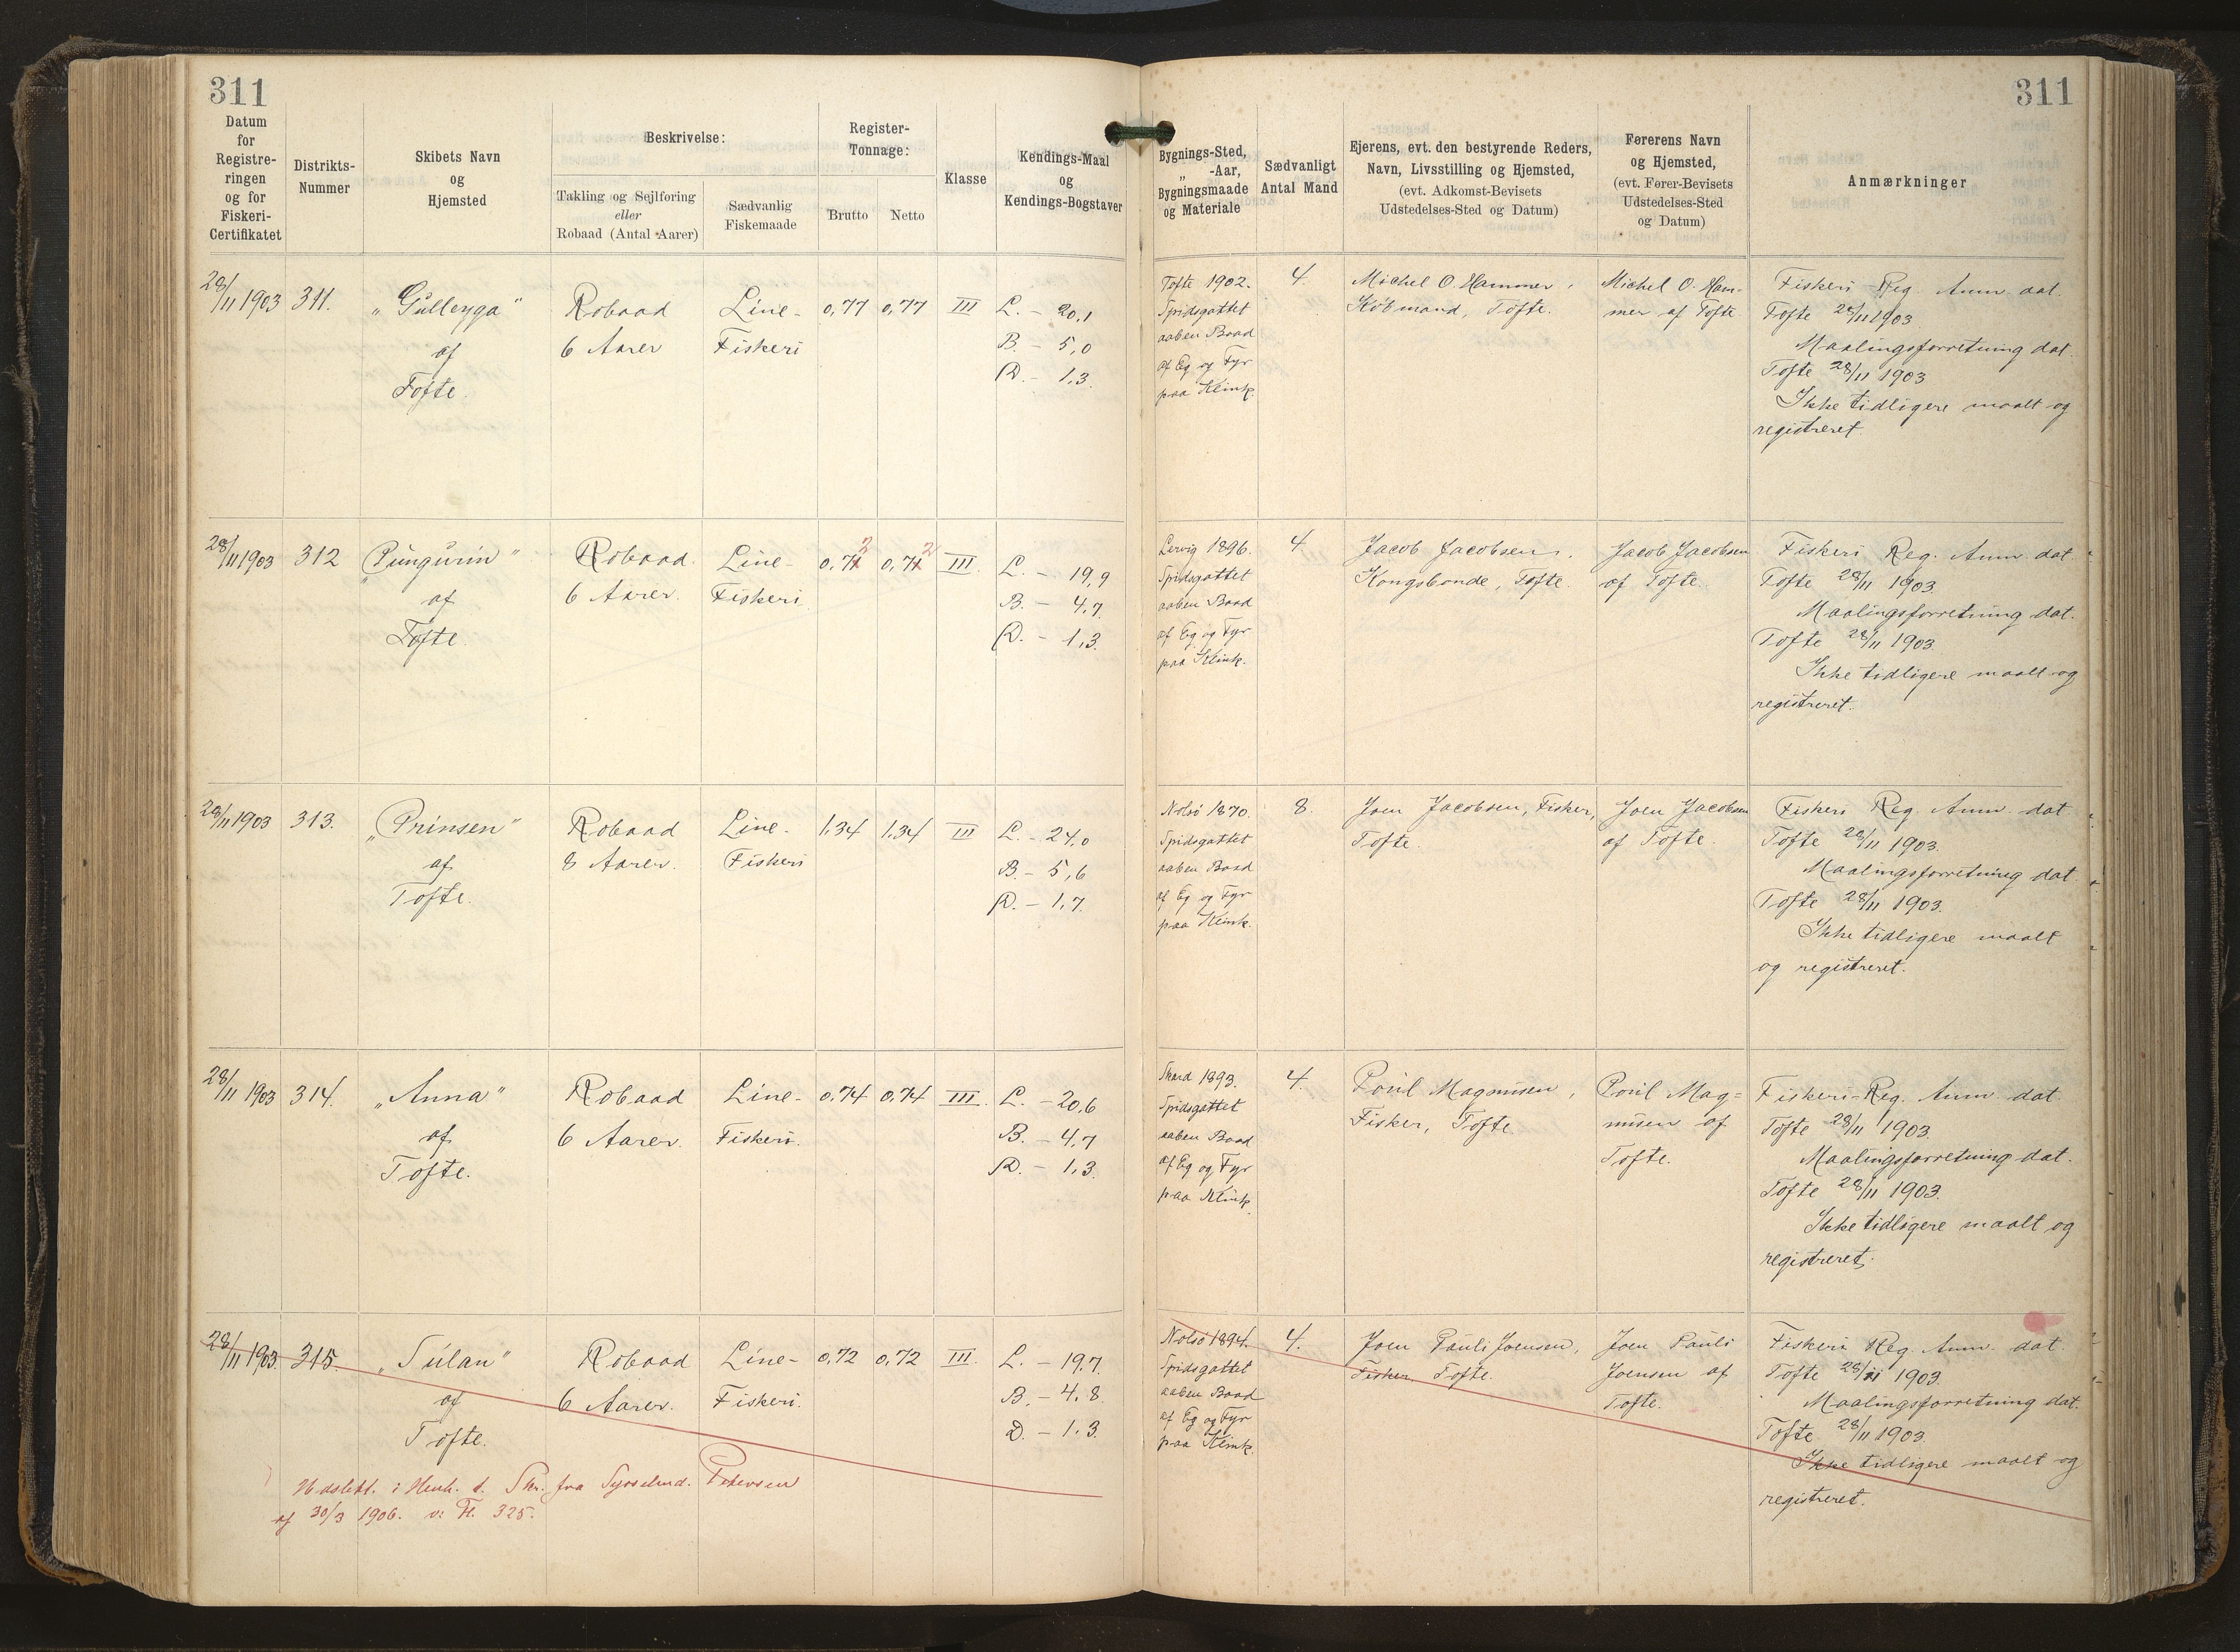 311
311
Datum
for
Registre-
ringen
og for
Fiskeri-
Certifikatet
Distrikts-
Nummer
Skibets Navn
og
Hjemsted
Beskrivelse:
Takling og Sejlføring
eller
Robaad (Antal Aarer)
Sædvanlig
Fiskemaade
Register-
Tonnage:
Brutto
Netto
Klasse
Kendings-Maal
og
Kendings-Bogstaver
Bygnings-Sted,
„ -Aar,
Bygningsmaade
og Materiale
Sædvanligt
Antal Mand
Ejerens, evt. den bestyrende Reders,
Navn, Livsstilling og Hjemsted,
(evt. Adkomst-Bevisets
Udstedelses-Sted og Datum)
Førerens Navn
og Hjemsted,
(evt. Fører-Bevisets
Udstedelses-Sted
og Datum)
Anmærkninger
28/11 1903
311.
„Gulleyga"
af
Tofte.
Robaad
6 Aarer
Line-
Fiskeri
0,77
0,77
III
L. - 20,1
B. - 5,0
D. - 1,3.
Tofte 1902.
Spidsgattet
aaben Baad
af Eg og Fyr
paa Klink.
4.
Michel O. Hammer,
Købmand, Tofte.
Michel O. Ham-
mer af Tofte
Fiskeri-Reg. Anm. dat.
Tofte 28/11 1903
Maalingsforretning dat.
Tofte 28/11 1903
Ikke tidligere maalt og
registreret.
28/11 1903
312
„Pungurin"
af
Tofte.
Robaad.
6 Aarer.
Line-
Fiskeri
0,72
0,72
III.
L. - 19,9
B. - 4,7
D. - 1,3.
Lervig 1896.
Spidsgattet
aaben Baad
af Eg og Fyr
paa Klink.
4.
Jacob Jacobsen,
Kongsbonde, Tofte.
Jacob Jacobsen
af Tofte.
Fiskeri Reg. Anm. dat.
Tofte 28/11 1903.
Maalingsforretning dat.
Tofte 28/11 1903.
Ikke tidligere maalt og
registreret.
28/11 1903
313.
„Prinsen"
af
Tofte.
Robaad
8 Aarer.
Line-
Fiskeri
1,34
1,34
III
L. - 24,0
B. - 5,6
D. - 1,7.
Nolsø 1870.
Spidsgattet
aaben Baad
af Eg og Fyr
paa Klink.
8.
Joen Jacobsen, Fisker,
Tofte.
Joen Jacobsen
af Tofte.
Fiskeri Reg. Anm. dat.
Tofte 28/11 1903.
Maalingsforretning dat.
Tofte 28/11 1903.
Ikke tidligere maalt
og registreret.
28/11 1903
314.
„Anna"
af
Tofte.
Robaad
6 Aarer.
Line-
Fiskeri.
0,74
0,74
III.
L. - 20,6
B. - 4,7
D. - 1,3.
Skard 1893.
Spidsgattet
aaben Baad
af Eg og Fyr
paa Klink.
4.
Poul Magnusen,
Fisker, Tofte.
Poul Mag=
nusen af
Tofte.
Fiskeri-Reg. Anm. dat.
Tofte 28/11 1903.
Maalingsforretning dat.
Tofte 28/11 1903.
Ikke tidligere maalt og
registreret.
28/11 1903.
315.
„Sulan"
af
Tofte.
Robaad
6 Aarer.
Line-
Fiskeri.
0,72
0,72
III.
L. - 19,7.
B. - 4,8
D. - 1,3.
Nolsø 1894.
Spidsgattet
aaben Baad
af Eg og Fyr
paa Klink.
4.
Joen Pauli Joensen,
Fisker, Tofte.
Joen Pauli
Joensen af
Tofte.
Fiskeri Reg. Anm. dat.
Tofte 28/11 1903.
Maalingsforretning dat.
Tofte 28/11 1903.
Ikke tidligere maalt og
registreret.
Udslett. i Henh. t. Skr. fra Sysselmd. Petersen
af 30/3 1906. v: Fl. 325.